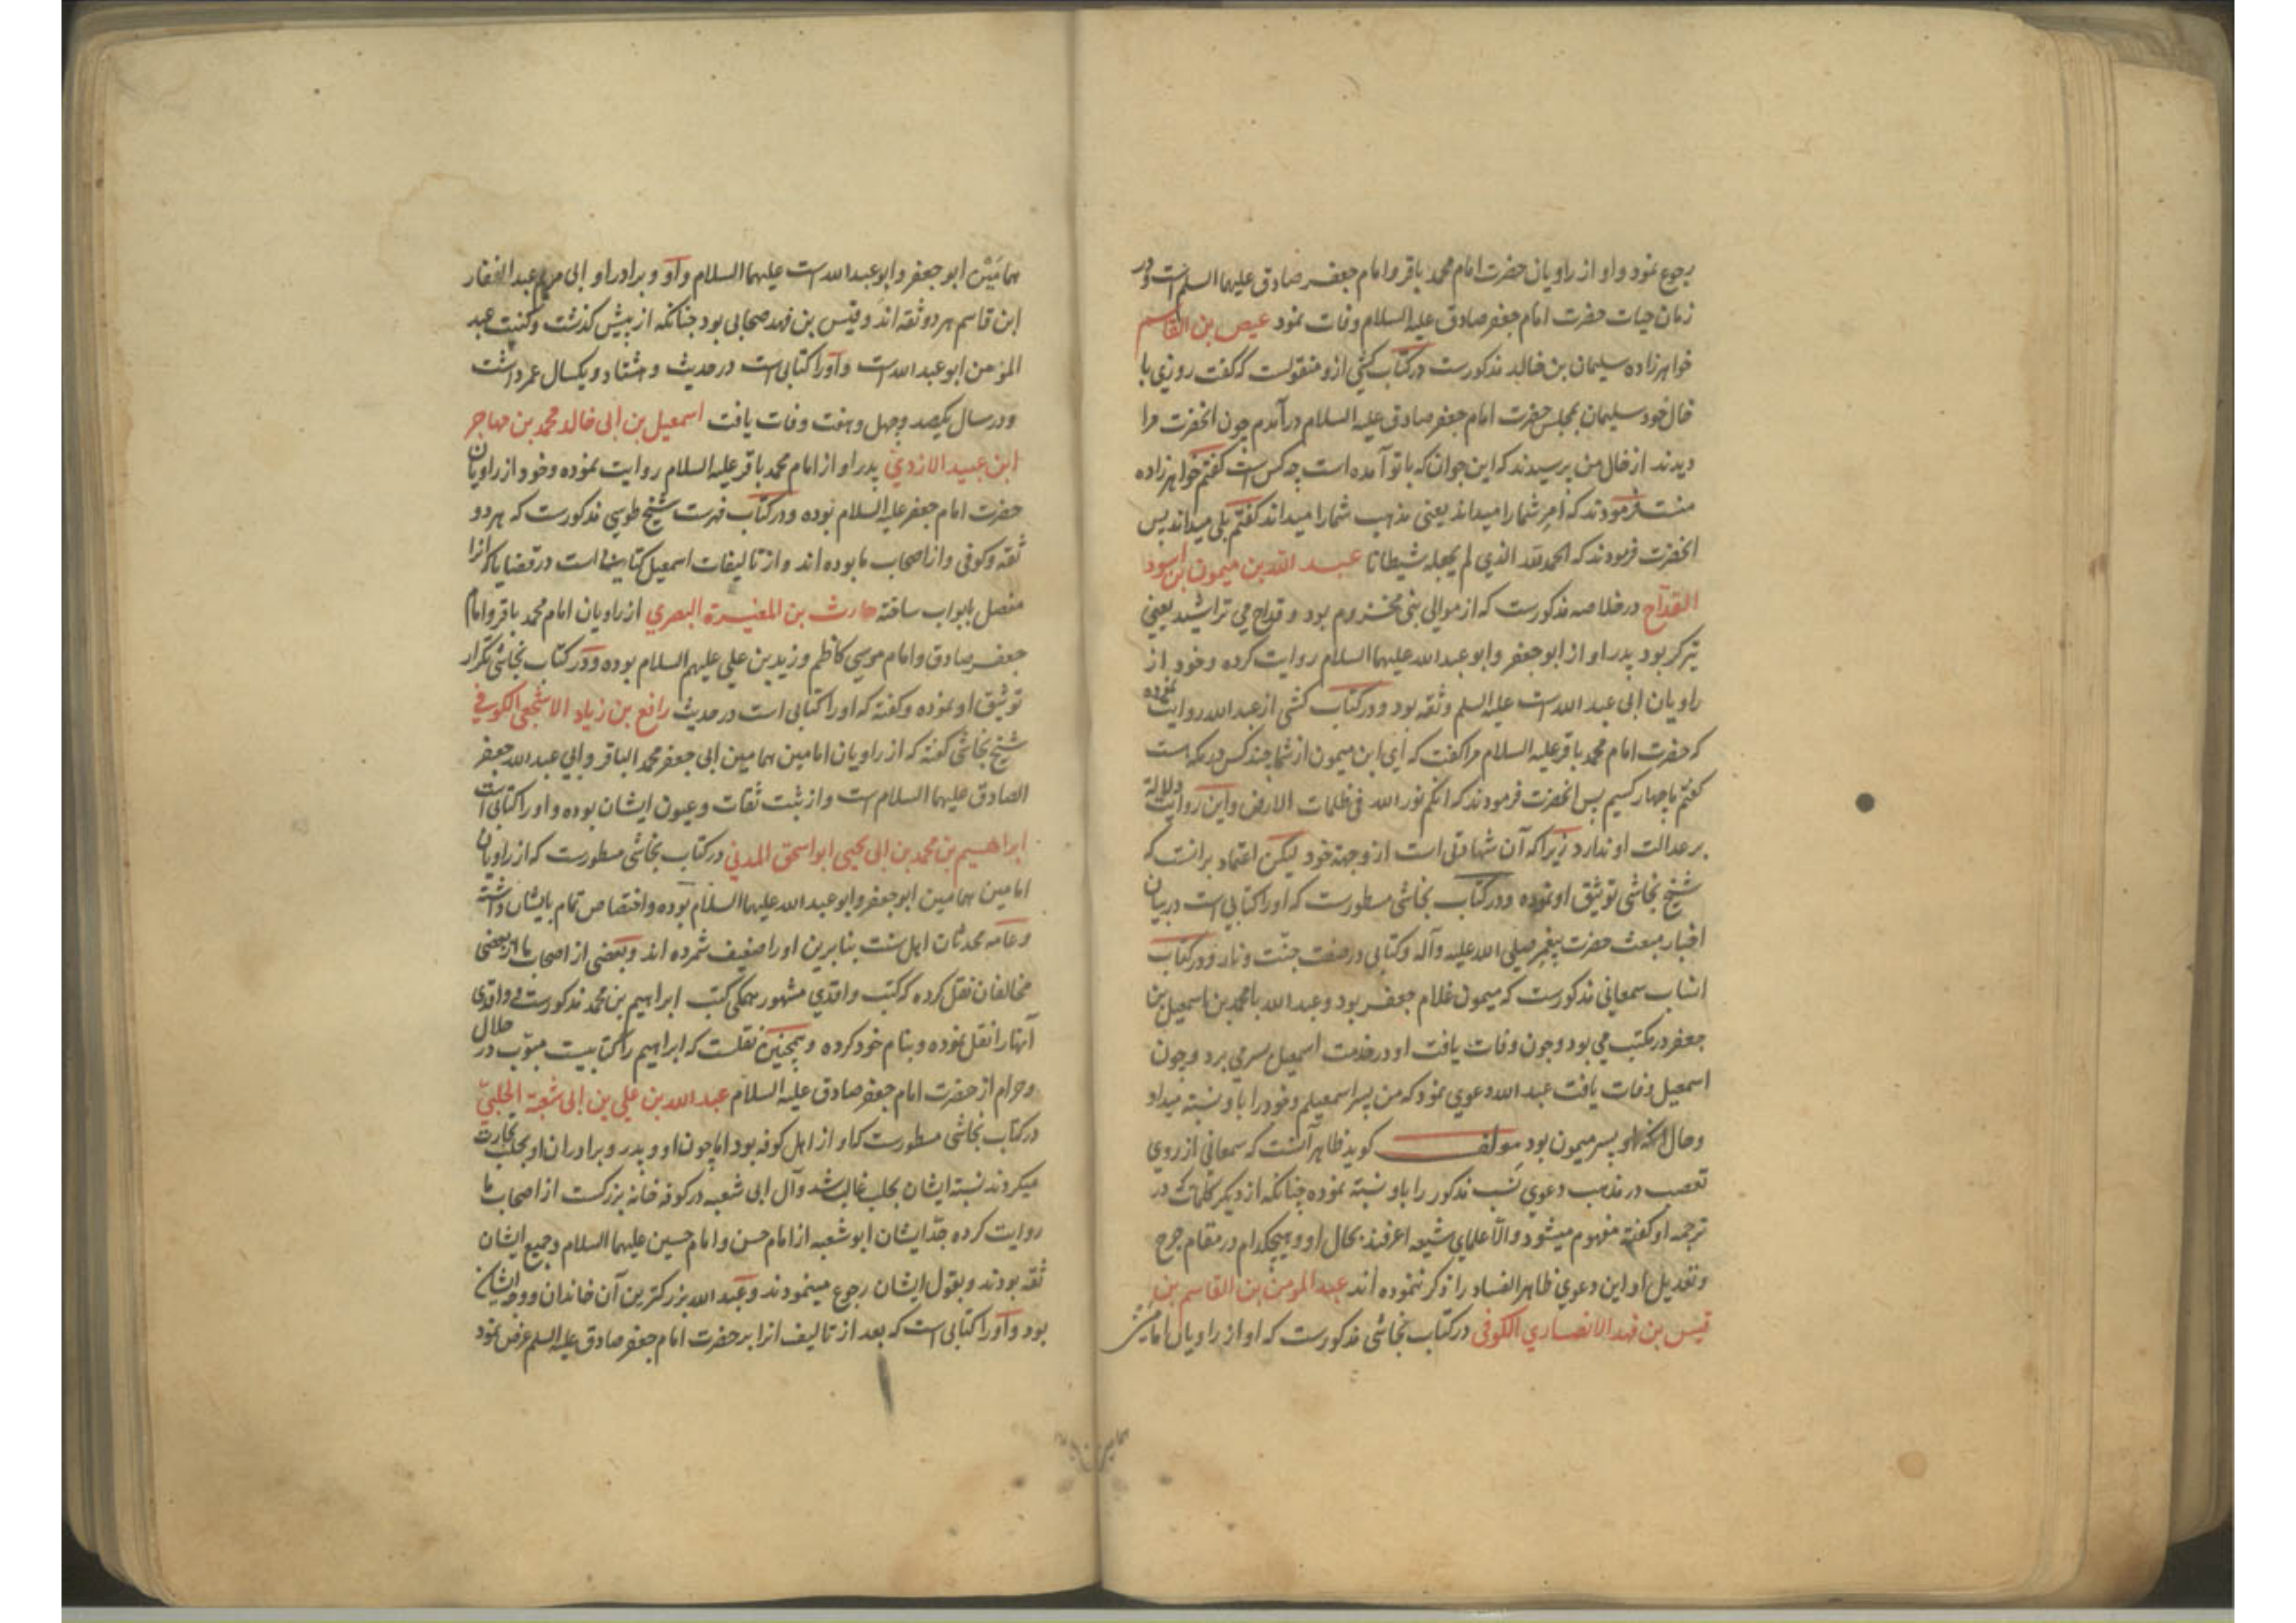 رجوع نمود و او از راویان حضرت امام محمد باقر و امام جعفر صادق علیهما السلم است و در
زمان حیات حضرت امام جعفر صادق علیه السلام وفات نمود عیص بن القاسم
خواهرزاده سلیمان بن خالد مذکورست در کتاب کشی ازو منقولست که گفت روزی با
خال خود سلیمان بمجلس حضرت امام جعفر صادق علیه السلام درآمدم چون انحضرت مرا
دیدند از خال من پرسیدند که این جوان که با تو آمده است چه کس است گفتم خواهرزاده
منست فرمودند که امر شما را میداند یعنی مذهب شما را میداند گفتم بلی میداند پس
انحضرت فرمودند که الحمد لله الذي لم یجعله شیطانا عبد الله بن میمون بن اسود
القداح در خلاصه مذکورست که از موالی بنی مخزوم بود و قداح می تراشید یعنی
تیرکر بود پدر او از ابو جعفر و ابو عبد الله علیهما السلام روایت کرده و خود از
راویان ابی عبد الله است علیه السلم و ثقه بود و در کتاب کشی از عبد الله روایت نموده
که حضرت امام محمد باقر علیه السلام مرا گفت که ای ابن میمون از شما چند کس در مکه است
گفتم ما چهار کسیم پس انحضرت فرمودند که انکم نور الله فی ظلمات الارض و این روایت دلالة
بر عدالت او ندارد زیرا که آن شهادتی است از وجهة خود لیکن اعتماد برانست که
شیخ نجاشی توثیق او نموده و در کتاب نجاشی مسطورست که او را کتابی است در بیان
اخبار مبعث حضرت پیغمبر صلی الله علیه وآله و کتابی در صفت جنّت و نار و در کتاب
انساب سمعانی مذکورست که میمون غلام جعفر بود و عبد الله با محمد بن اسمعیل بن
جعفر در مکتب می بود و چون وفات یافت او در خدمت اسمعیل بسر می برد و چون
اسمعیل وفات یافت عبد الله دعوی نمود که من پسر اسمعیلم و خود را باو نسبة میداد
و حال انکه او پسر میمون بود مولف گوید ظاهر آنست که سمعانی از روی
تعصب در مذهب دعوی نسب مذکور را باو نسبة نموده چنانکه از دیکر کلمات که در
ترجمه او گفته مفهوم میشود و الّا علمای شیعه اعرفند بحال او و هیچکدام در مقام جرح
و تعدیل او این دعوی ظاهر الفساد را ذکر ننموده اند عبد المومن بن القاسم بن
قیس بن فهد الانصاري الکوفی در کتاب نجاشی مذکورست که او از راویان امامین
همامین ابو جعفر و ابو عبد الله است علیهما السلام و او و برادر او ابی مریم عبد الغفار
ابن قاسم هر دو ثقه اند و قیس بن فهد صحابی بود چنانکه از پیش گذشت و کنیت عبد
المؤمن ابو عبد الله است و او را کتابی است در حدیث و هشتاد و یکسال عمر داشت
و در سال یکصد و چهل و هفت وفات یافت اسمعیل بن ابی خالد محمد بن مهاجر
ابن عبید الازدي پدر او از امام محمد باقر علیه السلام روایت نموده و خود از راویان
حضرت امام جعفر علیه السلام بوده و در کتاب فهرست شیخ طوسی مذکورست که هر دو
ثقه و کوفی و از اصحاب ما بوده اند و از تالیفات اسمعیل کتابیست در قضایا که انرا
مفصل بابواب ساخته حارث بن المغیرة البصري از راویان امام محمد باقر و امام
جعفر صادق و امام موسی کاظم و زید بن علی علیهم السلام بوده و در کتاب نجاشی تکرار
توثیق او نموده و گفته که او را کتابی است در حدیث رافع بن زیاد الاشجعی الکوفي
شیخ نجاشی گفته که از راویان امامین همامین ابی جعفر محمد الباقر و ابی عبد الله جعفر
الصادق علیهما السلام است و از ثبت ثقات و عیون ایشان بوده و او را کتابی است
ابراهیم بن محمد بن ابی یحیی ابو اسحق المدنی در کتاب نجاشی مسطورست که از راویان
امامین همامین ابو جعفر و ابو عبد الله علیهما السلام بوده و اختصاص تمام بایشان داشته
و عامه محدثان اهل سنت بنا برین او را ضعیف شمرده اند و بعضی از اصحاب ما از بعضی
مخالفان نقل کرده که کتب واقدی مشهور همکی کتب ابراهیم بن محمد مذکورست و واقدی
آنها را نقل نموده و بنام خود کرده و همچنین نقلست که ابراهیم را کتابیست مبوّب در حلال
و حرام از حضرت امام جعفر صادق علیه السلام عبد الله بن علی بن ابی شعبة الحلبيّ
در کتاب نجاشی مسطورست که او از اهل کوفه بود اما چون او و پدر و برادران او بحلب تجارت
میکردند نسبة ایشان بحلب غالب شد و آل ابی شعبه در کوفه خانه بزرکست از اصحاب ما
روایت کرده جدّ ایشان ابو شعبه از امام حسن و امام حسین علیهما السلام و جمیع ایشان
ثقه بودند و بقول ایشان رجوع مینمودند و عبد الله بزرکترین آن خاندان و وجه ایشان
بود و او را کتابی است که بعد از تالیف انرا بر حضرت امام جعفر صادق علیه السلم عرض نمود